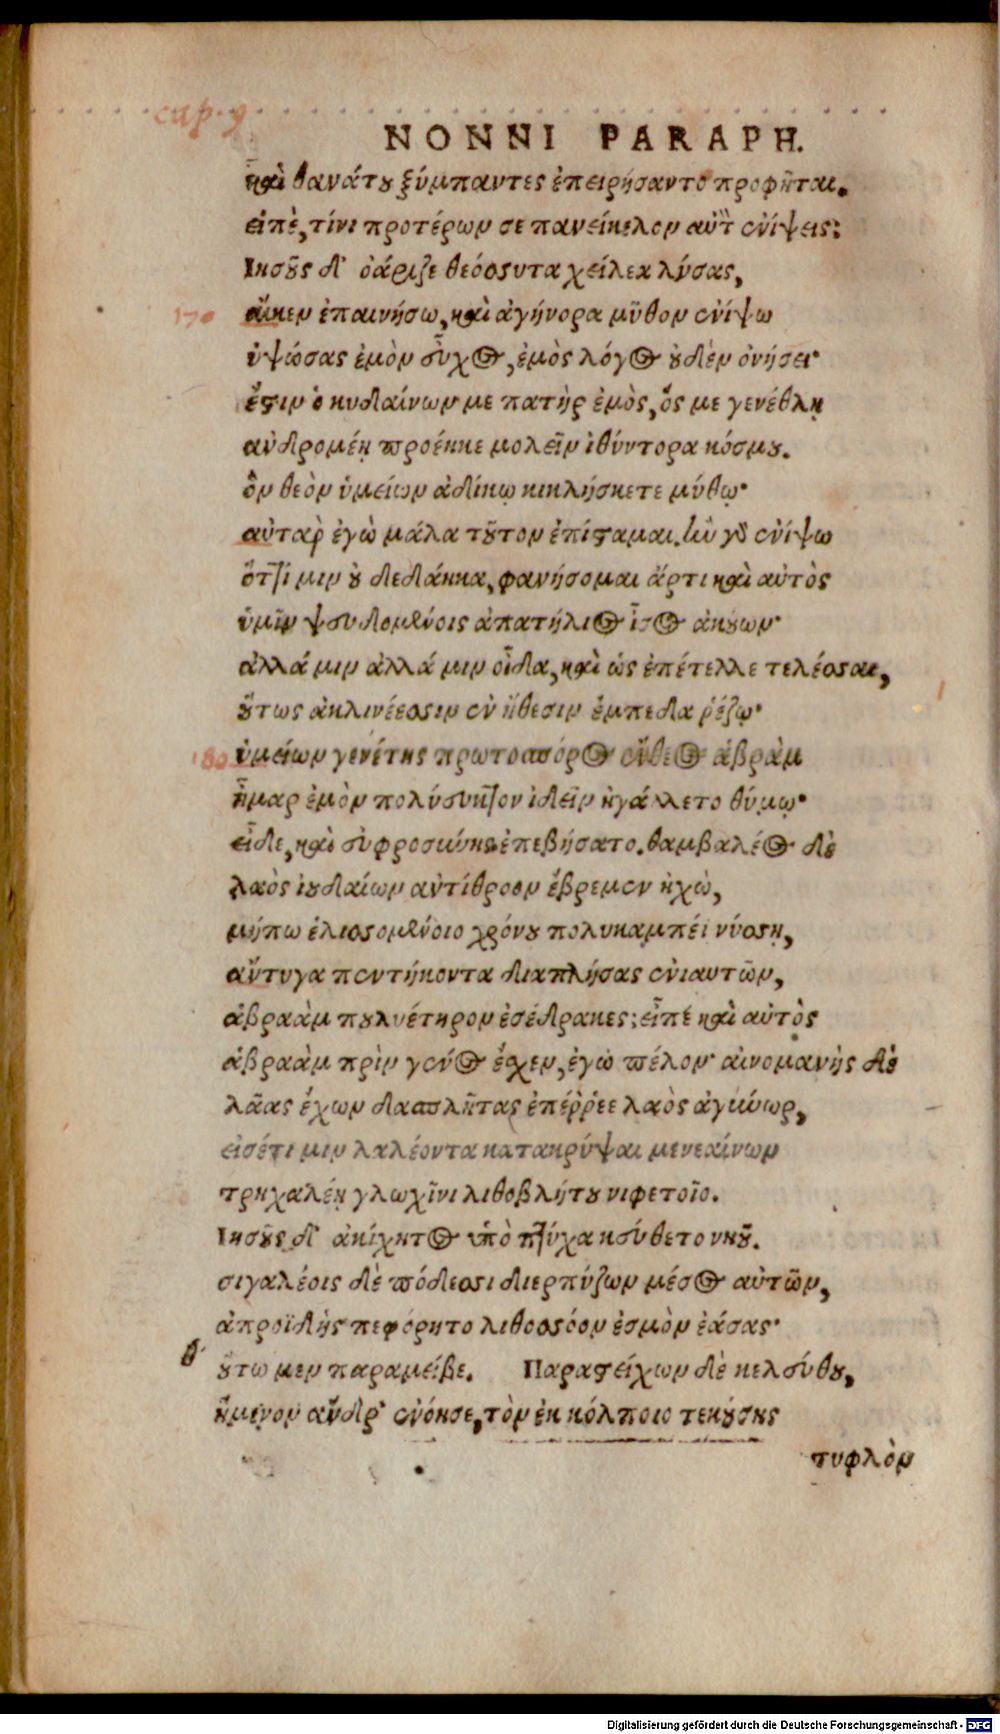 cap. 9
NONNI PARAPH.
καὶ θανάτου ξύμπαντες ἐπειρήσαντο προφῆται.
εἰπὲ, τίνι προτέρων σε πανείκελον αὐτὸν ἐνίψεις;
Ἰησοῦς δ' ὀάριζε θεόσσυτα χείλεα λύσας,
170 αἴκεν ἐπαινήσω, καὶ ἀγήνορα μῦθον ἐνίψω
ὑψώσας ἐμὸν εὖχος, ἐμὸς λόγος οὐδὲν ὀνήσει·
ἔστιν ὁ κυδαίνων με πατὴρ ἐμὸς, ὅς με γενέθλῃ
ἀνδρομέῃ προέηκε μολεῖν ἰθύντορα κόσμου.
ὃν θεὸν ὑμείων ἀδίκῳ κικλήσκετε μύθῳ·
αὐτὰρ ἐγὼ μάλα τοῦτον ἐπίσταμαι. ἢν γὰρ ἐνίψω
ὅττί μιν οὐ δεδάηκα, φανήσομαι ἄρτι καὶ αὐτὸς
ὑμῖν ψευδομένοις ἀπατήλιος ἶσος ἀκούων·
ἀλλά μιν ἀλλά μιν οἶδα, καὶ ὡς ἐπέτελλε τελέσσαι,
οὕτως ἀκλινέεσσιν ἐν ἤθεσιν ἔμπεδα ῥέζω·
180 ὑμείων γενέτης πρωτοσπόρος ἔνθεος ἀβρὰμ
ἦμαρ ἐμὸν πολύευκτον ἰδεῖν ἠγάλλετο θύμῳ·
εἶδε, καὶ εὐφροσύνης ἐπεβήσατο. θαμβαλέος δὲ
λαὸς ἰουδαίων ἀντίθροον ἔβρεμεν ἠχὼ,
μήπω ἑλισσομένοιο χρόνου πολυκαμπέι νύσσῃ,
ἄντυγα πεντήκοντα διαπλήσας ἐνιαυτῶν,
ἀβραὰμ πουλυέτηρον ἐσέδρακες; εἶπε καὶ αὐτὸς
ἀβραὰμ πρὶν γένος ἔσχεν, ἐγὼ πέλον· αἰνομανὴς δὲ
λᾶας ἔχων δασπλῆτας ἐπέῤῥεε λαὸς ἀγήνωρ,
εἰσέτι μιν λαλέοντα κατακρύψαι μενεαίνων
τρηχαλέῃ γλωχῖνι λιθοβλήτου νιφετοῖο.
Ἰησοῦς δ' ἀκίχητος ὑπὸ πτύχα κεύθετο νηοῦ.
σιγαλέοις δὲ πόδεσσι διερπύζων μέσος αὐτῶν,
ἀπροϊδὴς πεφόρητο λιθοσσόον ἑσμὸν ἐάσας·
θ' οὕτω μεν παραμείβε. Παραστείχων δὲ κελεύθου,
ἥμενον ἄνδρ' ἐνόησε, τὸν ἐκ κόλποιο τεκούσης
τυφλὸν
Digitalisierung gefördert durch die Deutsche Forschungsgemeinschaft - DFG